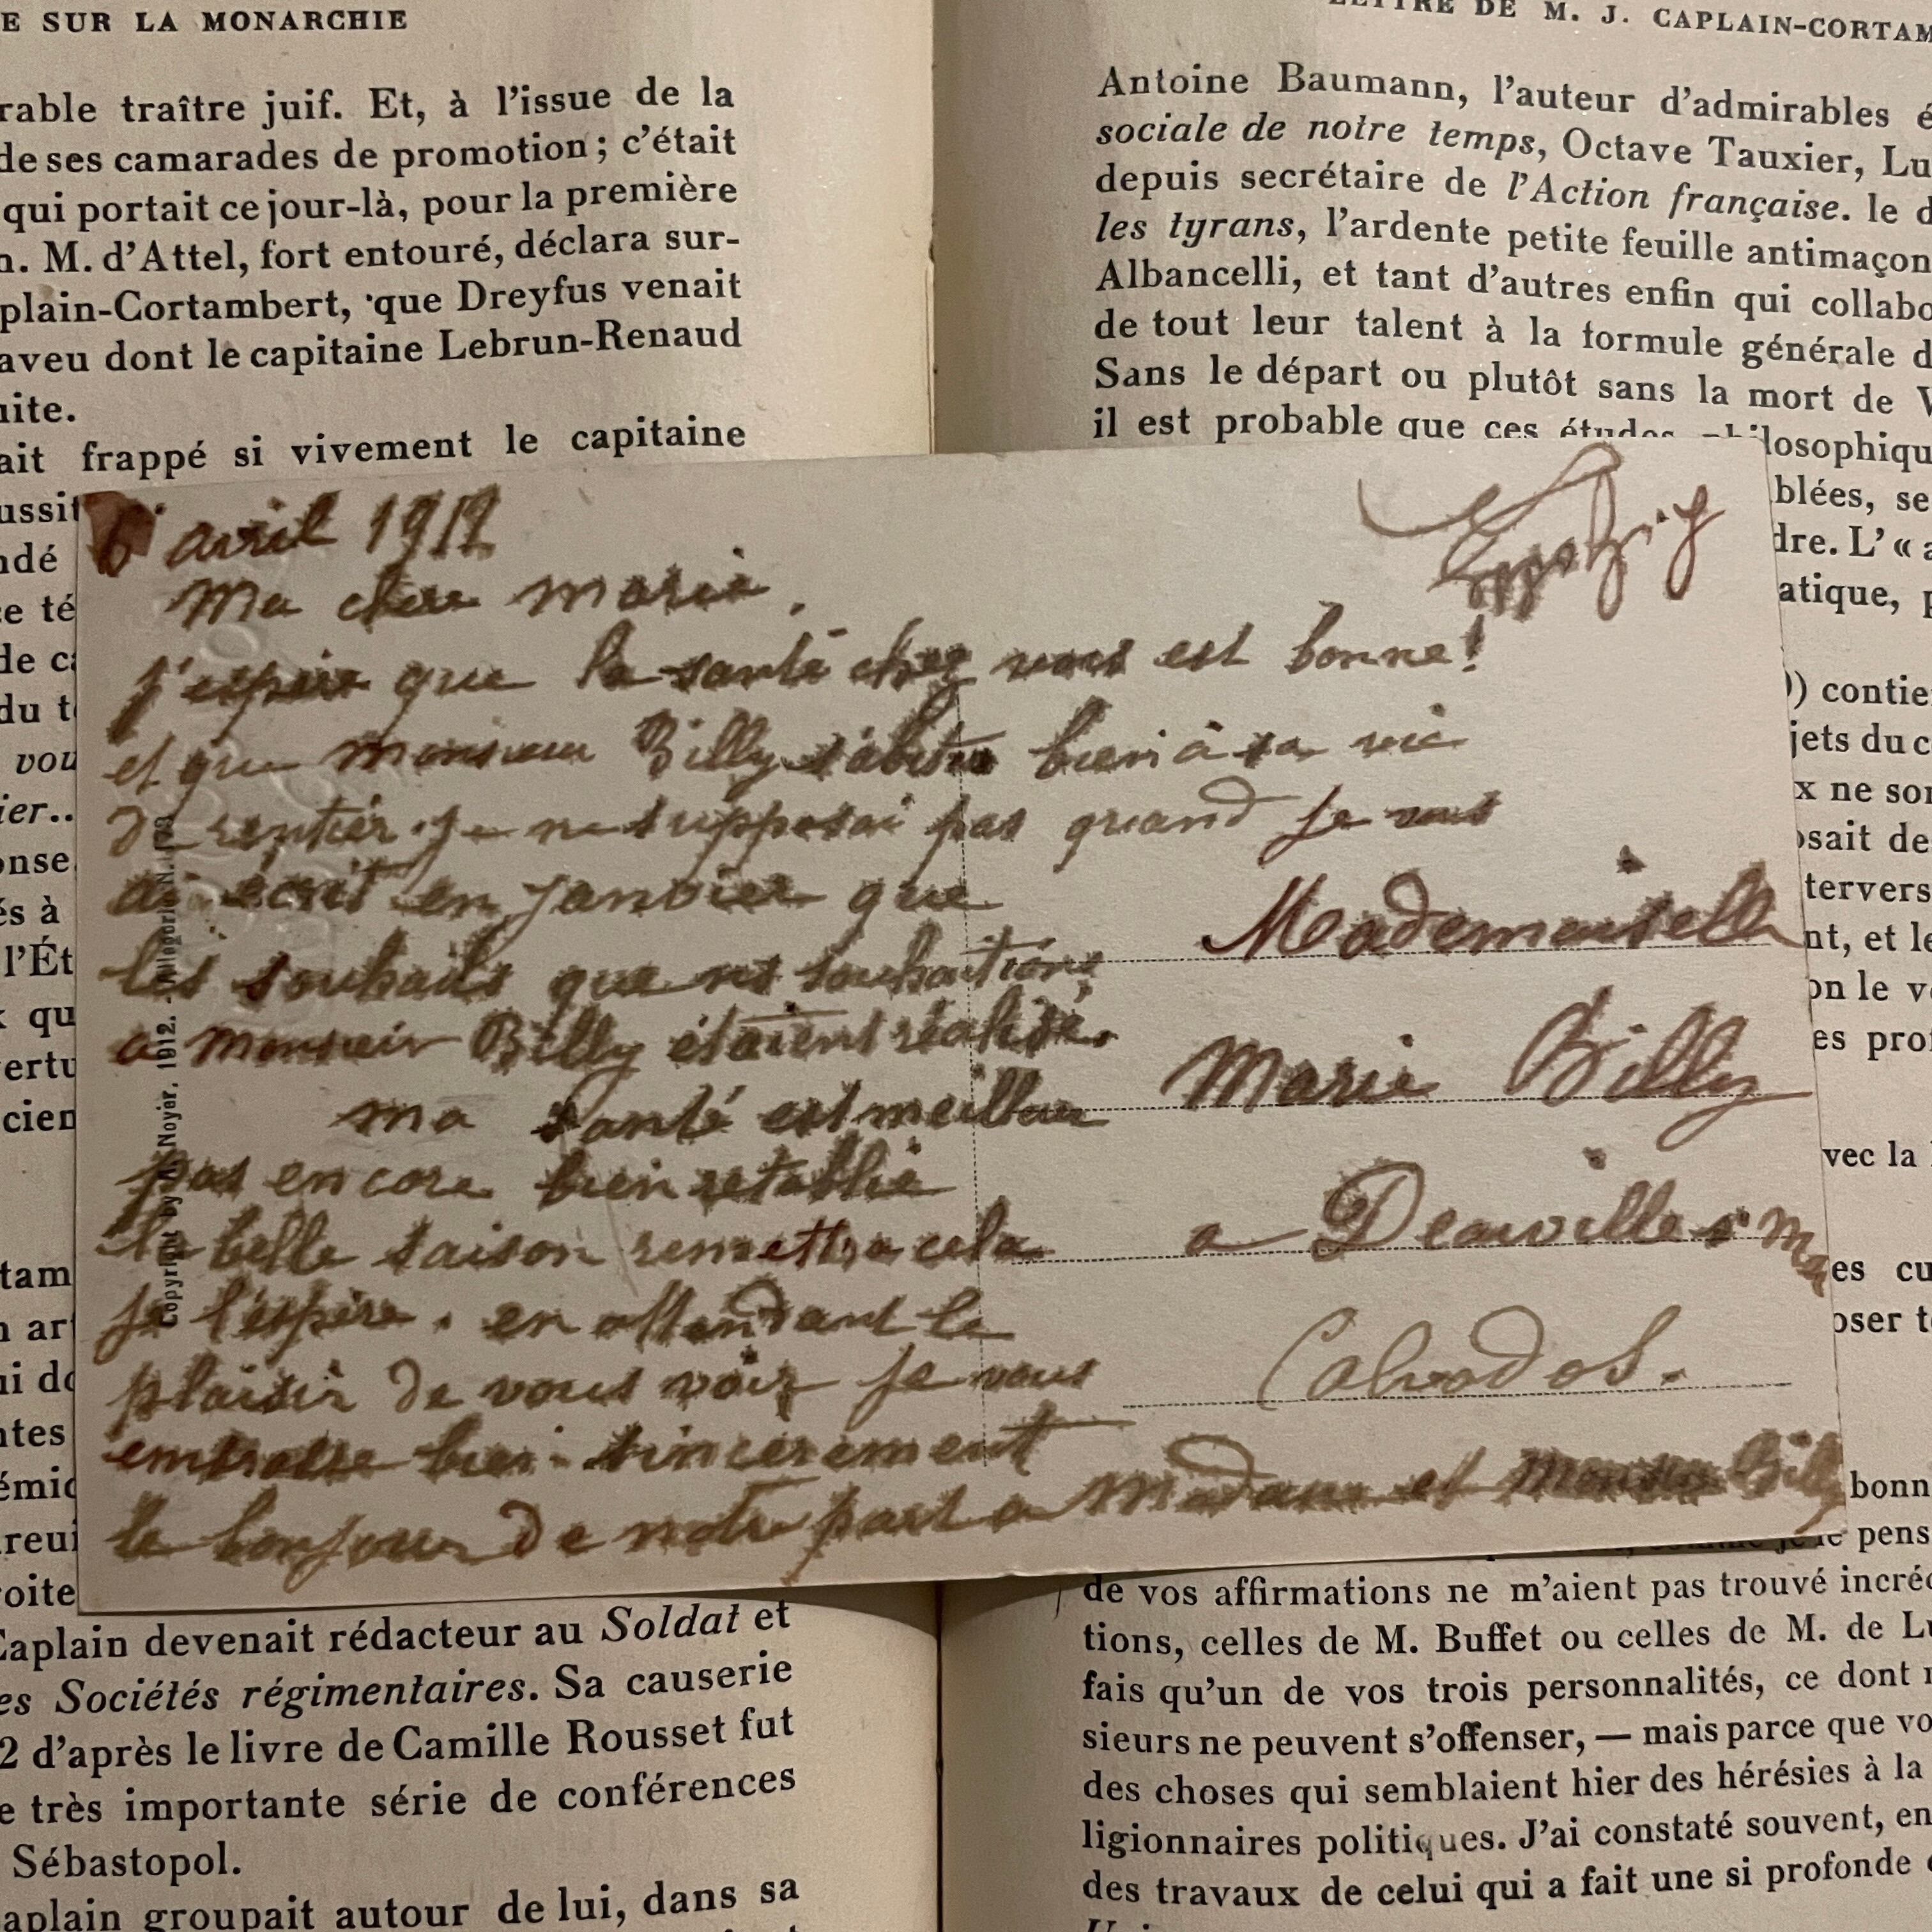 E SUR LA MONARCHIE
rable traître juif. Et, à l'issue de la
de ses camarades de promotion; c'était
qui portait ce jour-là, pour la première
n. M. d'Attel, fort entouré, déclara sur-
plain-Cortambert, que Dreyfus venait
aveu dont le capitaine Lebrun-Renaud
uite.
ait frappé si vivement le capitaine
ussit
ndé
ce té
de ca
du t
vou
ier..
onse
és à
l'Ét
x qu
vertu
cien
tam
n art
ui do
ntes
émic
reui
roite
Caplain devenait rédacteur au Soldat et
es Sociétés régimentaires. Sa causerie
2 d'après le livre de Camille Rousset fut
e très importante série de conférences
Sébastopol.
aplain groupait autour de lui, dans sa
LETTRE DE M. J. CAPLAIN-CORTAM
Antoine Baumann, l'auteur d'admirables é
sociale de notre temps, Octave Tauxier, Lu
depuis secrétaire de l'Action française. le d
les tyrans, l'ardente petite feuille antimaçon
Albancelli, et tant d'autres enfin qui collabo
de tout leur talent à la formule générale d
Sans le départ ou plutôt sans la mort de V
il est probable que ces études philosophiqu
blées, se
dre. L' « a
atique, p
) contie
jets du c
x ne son
osait de
tervers
nt, et le
on le v
es pro
vec la
es cu
oser t
bonn
je le pens
de vos affirmations ne m'aient pas trouvé incréd
tions, celles de M. Buffet ou celles de M. de Lu
fais qu'un de vos trois personnalités, ce dont
sieurs ne peuvent s'offenser, — mais parce que vo
des choses qui semblaient hier des hérésies à la
ligionnaires politiques. J'ai constaté souvent, en
des travaux de celui qui a fait une si profonde
6 avril 1912
Ma chere marie,
j'espère que la santé chez vous est bonne!
et que monsieur Billy s'abitue bien à sa vie
de rentier. je ne supposai pas quand je vous
ai écrit en janvier que
les souhaits que ns souhaitions
a monsieur Billy étaient réalisé.
ma santé est meilleur
pas encore bien retablie
la belle saison remettra cela
je l'espère. en attendant le
plaisir de vous voir je vous
embrasse bien sincerement
le bonjour de notre part a Madame et Monsieur Billy
Copyright by A. Noyer. 1912.
Mademoiselle
Marie Billy
a Deauville s' mer
Calvados.